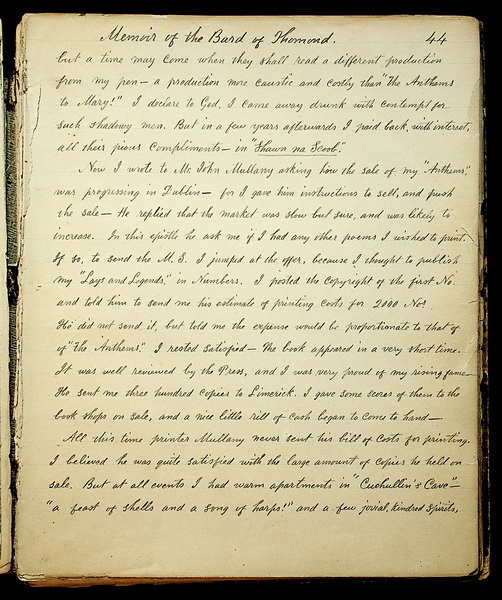 Memoir of the Bard of Thomond. 44
but a time may come when they shall read a different production
from my pen — a production more caustic and costly than "the Anthems
to Mary!" I declare to God, I came away drunk with contempt for
such shadowy men. But in a few years afterwards I paid back, with interest,
all their pious compliments — in "Shawn na Scoob".
Now I wrote to Mr. John Mullany asking how the sale of my "Anthems",
was progressing in Dublin — for I gave him instructions to sell, and push
the sale — He replied that the market was slow but sure, and was likely to
increase. In this epistle he ask me if I had any other poems I wished to print.
If so, to send the M.S. I jumped at the offer, because I thought to publish
my "Lays and Legends," in Numbers. I posted the copyright of the first No.
and told him to send me his estimate of printing costs for 2000 Nos.
He did not send it, but told me the expense would be proportionate to that of
of "the Anthems." I rested satisfied — The book appeared in a very short time.
It was well reviewed by the Press, and I was very proud of my rising fame
He sent me three hundred copies to Limerick. I gave some scores of them to the
book shops on sale, and a nice little rill of cash began to come to hand —
All this time printer Mullany never sent his bill of costs for printing.
I believed he was quite satisfied with the large amount of copies he held on
sale. But at all events I had warm apartments in "Cuchullin's Cave" —
"a feast of shells and a song of harps!" and a few jovial, kindred spirits,